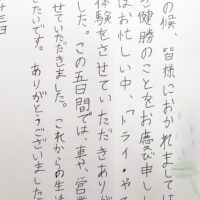 の候、皆様におかれましては
ご健勝のことをお慶び申し
はお忙しい中、「トライ・や
体験をさせていただきありが
した。この五日間では、車や、営業
せていただきました。これからの生活
したいです。ありがとうございました
十三日